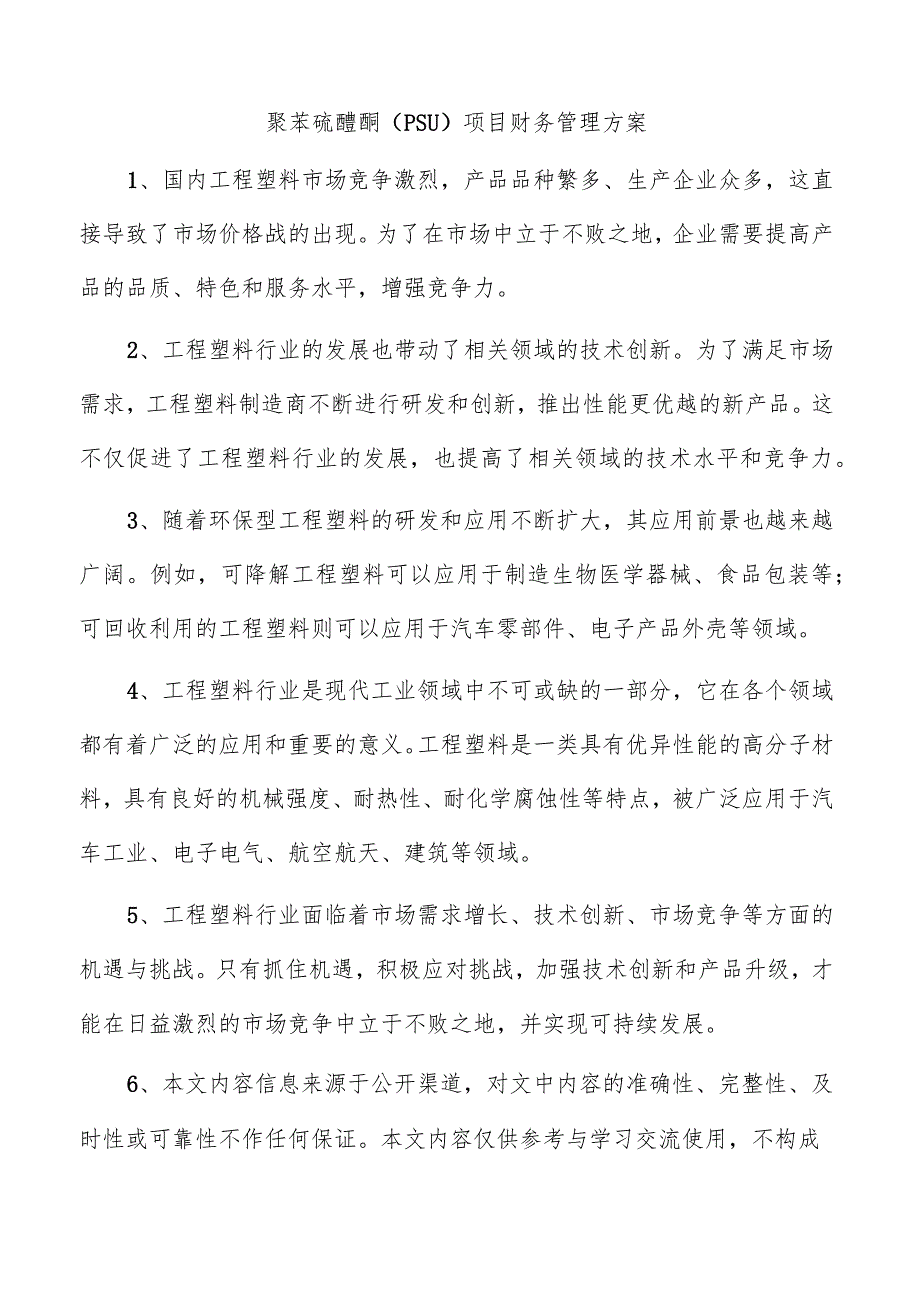 聚苯硫醴酮（PSU）项目财务管理方案
1、国内工程塑料市场竞争激烈，产品品种繁多、生产企业众多，这直
接导致了市场价格战的出现。为了在市场中立于不败之地，企业需要提高产
品的品质、特色和服务水平，增强竞争力。
2、工程塑料行业的发展也带动了相关领域的技术创新。为了满足市场
需求，工程塑料制造商不断进行研发和创新，推出性能更优越的新产品。这
不仅促进了工程塑料行业的发展，也提高了相关领域的技术水平和竞争力。
3、随着环保型工程塑料的研发和应用不断扩大，其应用前景也越来越
广阔。例如，可降解工程塑料可以应用于制造生物医学器械、食品包装等；
可回收利用的工程塑料则可以应用于汽车零部件、电子产品外壳等领域。
4、工程塑料行业是现代工业领域中不可或缺的一部分，它在各个领域
都有着广泛的应用和重要的意义。工程塑料是一类具有优异性能的高分子材
料，具有良好的机械强度、耐热性、耐化学腐蚀性等特点，被广泛应用于汽
车工业、电子电气、航空航天、建筑等领域。
5、工程塑料行业面临着市场需求增长、技术创新、市场竞争等方面的
机遇与挑战。只有抓住机遇，积极应对挑战，加强技术创新和产品升级，才
能在日益激烈的市场竞争中立于不败之地，并实现可持续发展。
6、本文内容信息来源于公开渠道，对文中内容的准确性、完整性、及
时性或可靠性不作任何保证。本文内容仅供参考与学习交流使用，不构成